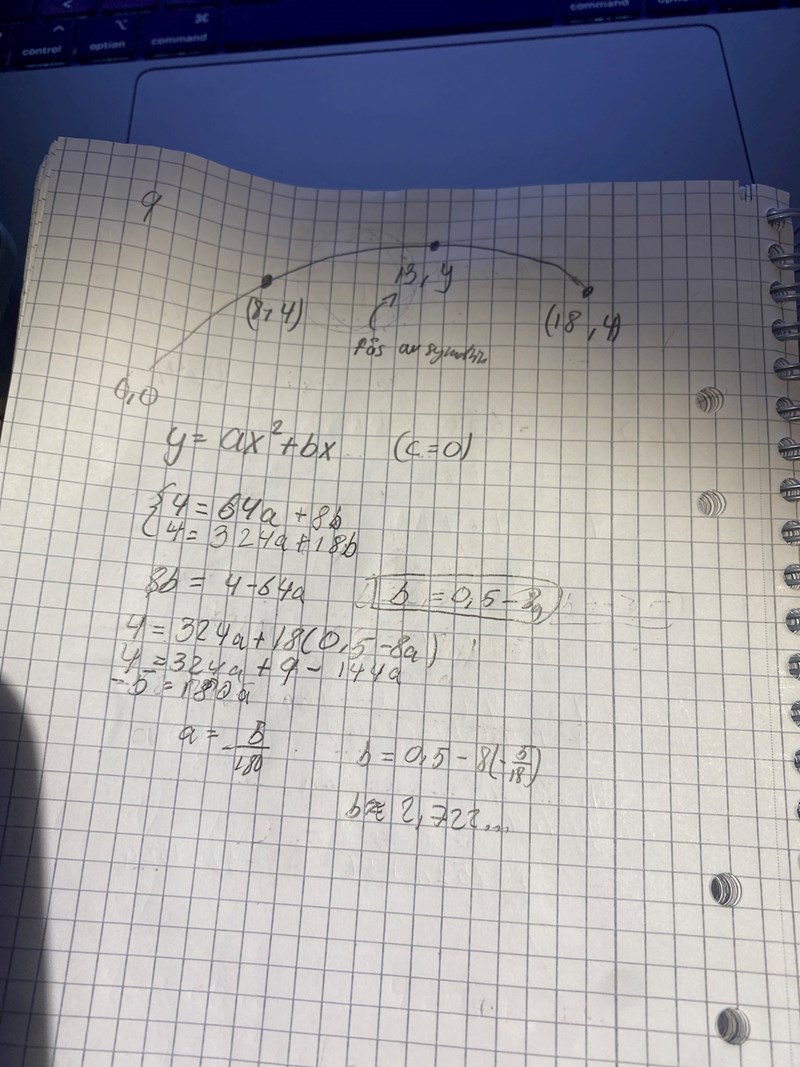 control
option
⌘
command
command
9
13, y
(8, 4)
(18, 4)
fås av symmetri
0, 0
y = ax² + bx (c = 0)
4 = 64a + 8b
4 = 324a + 18b
8b = 4 - 64a b = 0,5 - 8a
4 = 324a + 18(0,5 - 8a)
4 = 324a + 9 - 144a
-5 = 180a
a = -5/180
b = 0,5 - 8(-5/18)
b ≈ 2,722...